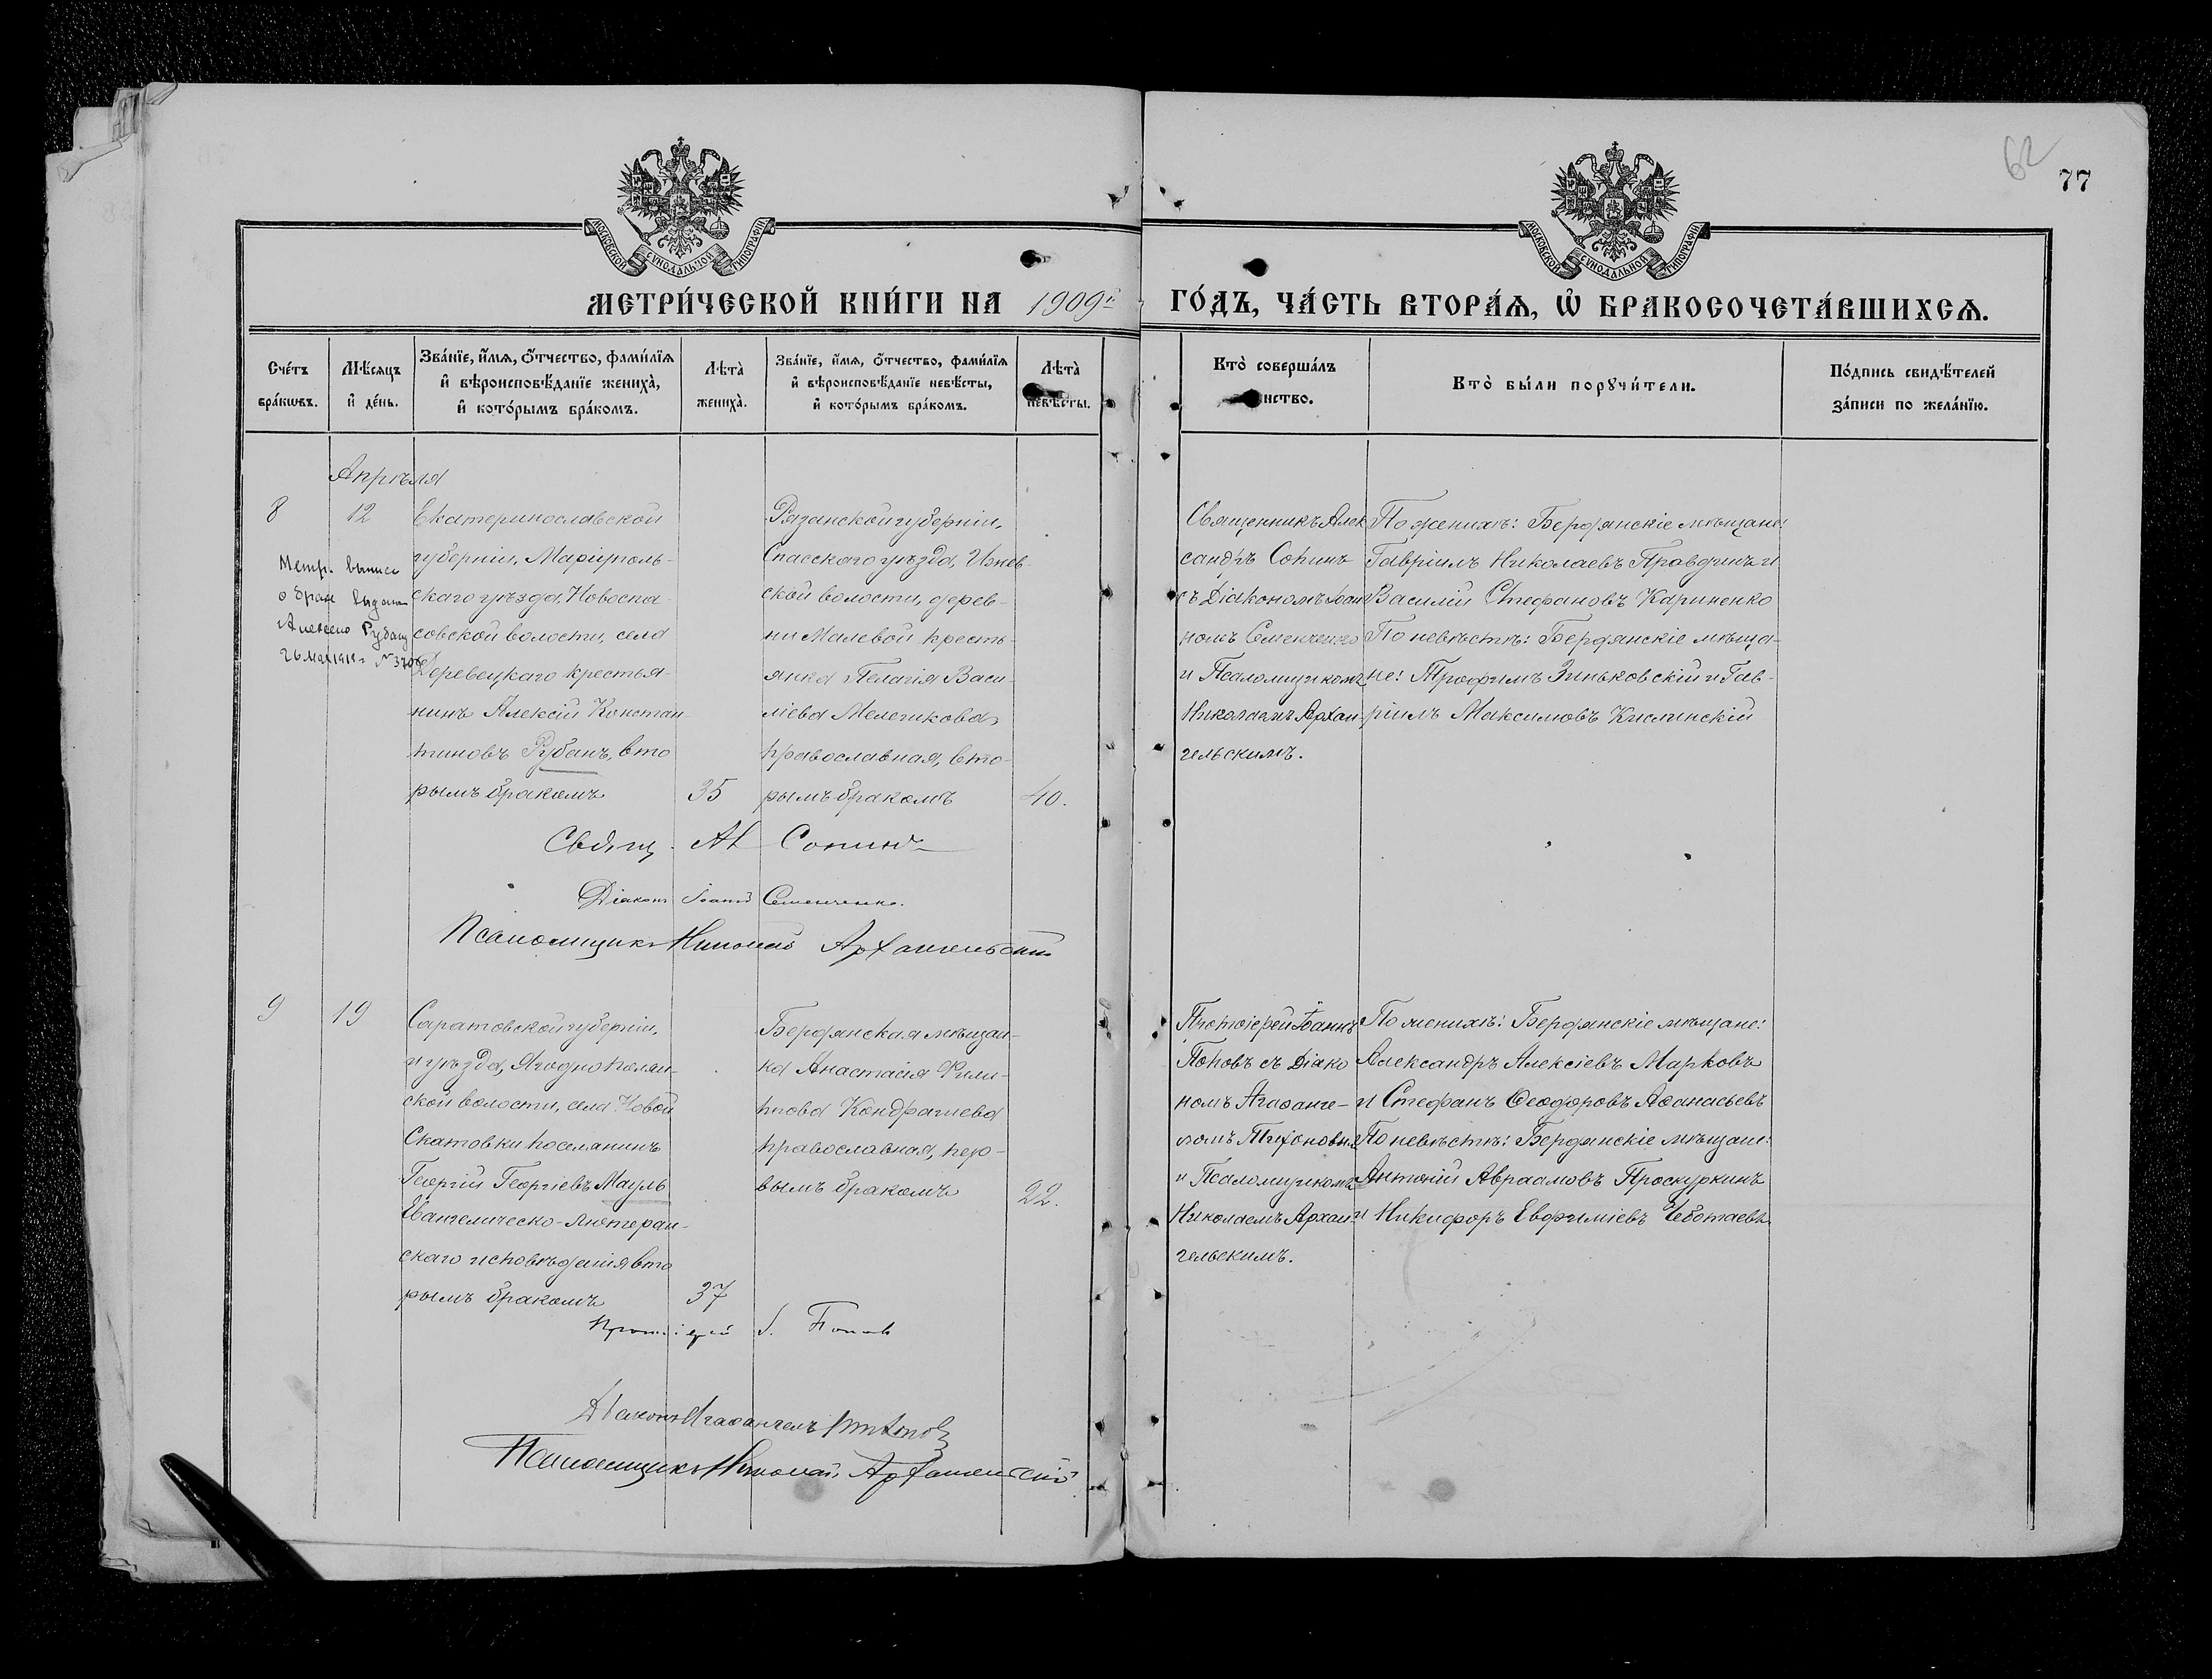 62
77
МОСКОВСКОЙ СѴНОДАЛЬНОЙ ТИПОГРАФІИ
МОСКОВСКОЙ СѴНОДАЛЬНОЙ ТИПОГРАФІИ
МЕТРИ́ЧЕСКОЙ КНИ́ГИ НА 1909й ГО́ДЪ, ЧА́СТЬ ВТОРА́Ѧ, Ѡ҆ БРАКОСОЧЕТА́ВШИХСѦ.
Сче́тъ
бра́кѡвъ.
Мѣ́сѧцъ
и҆ де́нь.
Зва́нїе, и҆́мѧ, ѻ҆́тчество, фами́лїѧ
и҆ вѣроисповѣ́данїе жениха̀,
и҆ кото́рымъ бра́комъ.
Лѣ́та̀
жениха̀.
Зва́нїе, и҆́мѧ, ѻ҆́тчество, фами́лїѧ
и҆ вѣроисповѣ́данїе невѣ́сты,
и҆ кото́рымъ бра́комъ.
Лѣ́та̀
невѣ́сты.
Кто̀ соверша́лъ
нство.
Кто̀ бы́ли порꙋчи́тели.
По́дпись свидѣ́телей
за́писи по жела́нїю.
Апрѣля
8
12
Метр. выпись
о браке выдана
Алексею Рубану
26 мая
Екатеринославской
губерніи, Маріуполь-
скаго уѣзда, Новоспа-
совской волости, села
Деревецкаго крестья-
нинъ Алексій Констан-
тиновъ Рубанъ, вто
рымъ бракомъ
35
Рязанской губерніи,
Спасскаго уѣзда, Ижев-
ской волости, дерев-
ни Малевой кресть-
янка Пелагія Васи-
ліева Мелешкова
православная, вто-
рымъ бракомъ
40.
Священникъ Алек
сандръ Сопинъ
съ Діакономъ Іоан
номъ Семенченко
и Псаломщикомъ
Николаемъ Архан-
гельскимъ.
По женихѣ: Бердянскіе мѣщане:
Гавріилъ Николаевъ Правдинъ и
Василій Стефановъ Кариненко
По невѣстѣ: Бердянскіе мѣща-
не: Трофимъ Зиньковскій и Гав-
ріилъ Максимовъ Кислинскій
Свящ. Ал Сопинъ
Діаконъ Іоаннъ Семенченко.
Псаломщикъ Николай Архангельскій
9
19
Саратовской губерніи,
и уѣзда, Ягодно Полян-
ской волости, села Новой
Скатовки поселянинъ
Георгій Георгіевъ Мауль
Евангелическо-Лютеран-
скаго исповѣданія вто
рымъ бракомъ
37
Бердянская мѣщан-
ка Анастасія Фили-
пова Кондрашева
православная, пер-
вымъ бракомъ
22.
Протоіерей Іоаннъ
Поповъ съ Діако
номъ Агафанге-
ломъ Тихоновымъ
и Псаломщикомъ
НиколаемъАрхан-
гельскимъ.
По женихѣ: Бердянскіе мѣщане:
Александръ Алексіевъ Марковъ
и Стефанъ Ѳеодоровъ Аѳанасьевъ
По невѣстѣ: Бердянскіе мѣщане:
Антоній Авраамовъ Проскуркинъ
и Никифоръ Евфиміевъ Чеботаевъ
Протоіерей І. Поповъ
Діаконъ Агаѳангелъ Тихоновъ
Псаломщикъ Николай Архангельскій